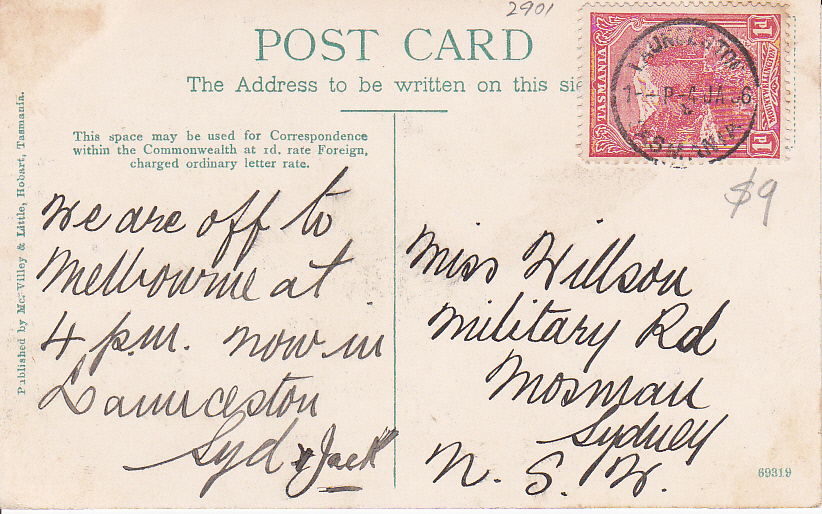 2901
POST CARD
The Address to be written on this
This space may be used for Correspondence
within the Commonwealth at 1d. rate Foreign,
charged ordinary letter rate.
Published by Mc. Villey & Little, Hobart, Tasmania.
We are off to
Melbourne at
4 p.m. now in
Launceston
Syd & Jack
1D
TASMANIA
MOUNT WELLINGTON
1D
LAUNCESTON
4 JA 06
TASMANIA
$9
Miss Willson
Military Rd
Mosman
Sydney
N. S. W.
69319